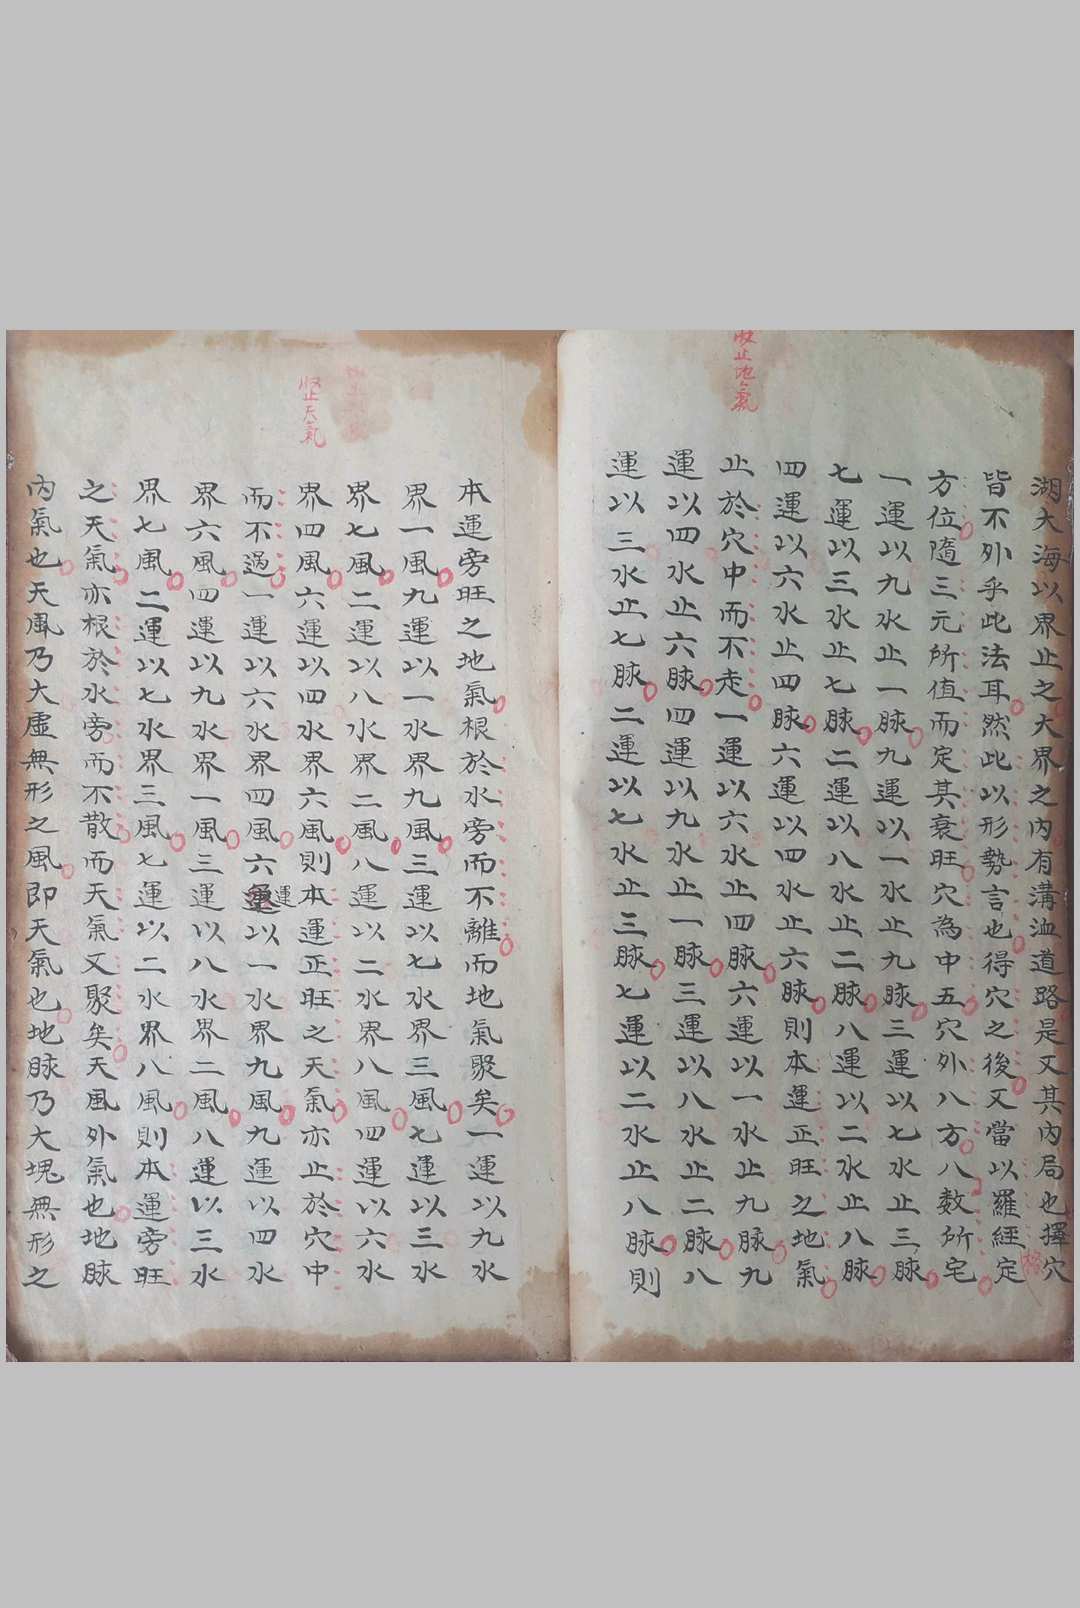 收止地氣
湖大海以界止之大界之內有溝洫道路是又其內局也擇穴
皆不外乎此法耳然此以形勢言也得穴之後又當以羅經定
格
方位隨三元所值而定其衰旺穴為中五穴外八方八数所宅
一運以九水止一脉九運以一水止九脉三運以七水止三脉
七運以三水止七脉二運以八水止二脉八運以二水止八脉
四運以六水止四脉六運以四水止六脉則本運正旺之地氣
止於穴中而不走一運以六水止四脉六運以一水止九脉九
運以四水止六脉四運以九水止一脉三運以八水止二脉八
運以三水止七脉二運以七水止三脉七運以二水止八脉則
收止天氣
本運旁旺之地氣根於水旁而不離而地氣聚矣一運以九水
界一風九運以一水界九風三運以七水界三風七運以三水
界七風二運以八水界二風八運以二水界八風四運以六水
界四風六運以四水界六風則本運正旺之天氣亦止於穴中
而不過一運以六水界四風六運以一水界九風九運以四水
運
界六風四運以九水界一風三運以八水界二風八運以三水
界七風二運以七水界三風七運以二水界八風則本運旁旺
之天氣亦根於水旁而不散而天氣又聚矣天風外氣也地脉
內氣也天風乃大虛無形之風即天氣也地脉乃大塊無形之